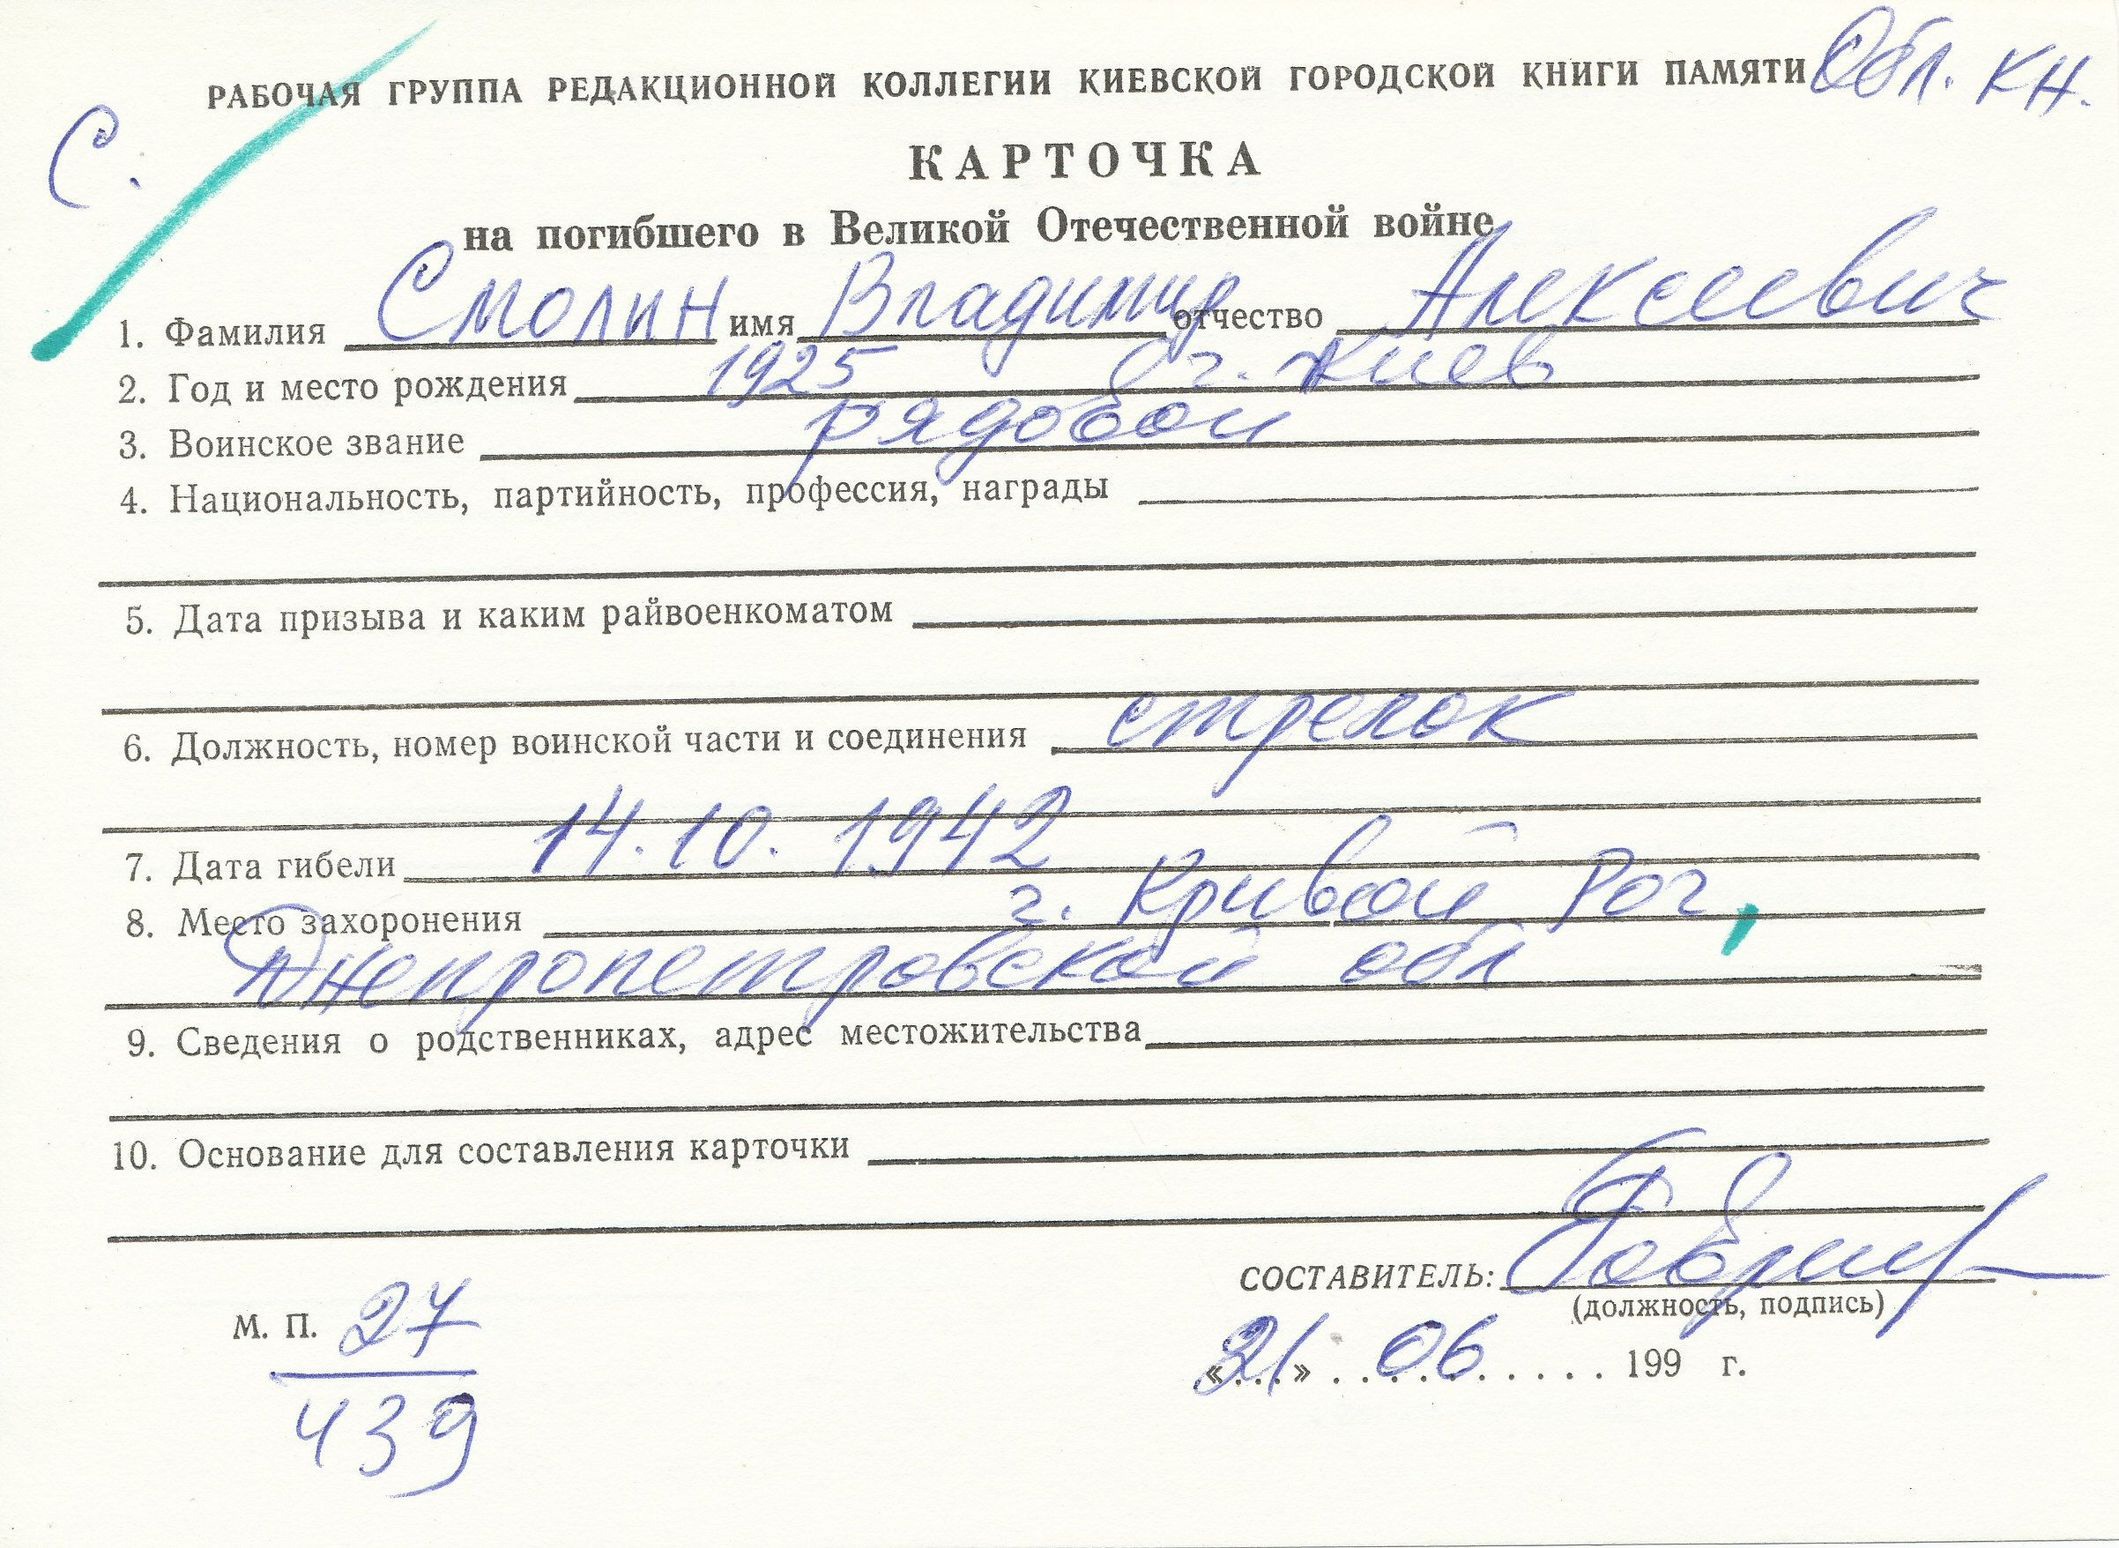 РАБОЧАЯ ГРУППА РЕДАКЦИОННОЙ КОЛЛЕГИИ КИЕВСКОЙ ГОРОДСКОЙ КНИГИ ПАМЯТИ Обл. кн.
С.
КАРТОЧКА
на погибшего в Великой Отечественной войне
1. Фамилия Смолин имя Владимир отчество Алексеевич
2. Год и место рождения 1925 г. Киев
3. Воинское звание рядовой
4. Национальность, партийность, профессия, награды
5. Дата призыва и каким райвоенкоматом
6. Должность, номер воинской части и соединения стрелок
7. Дата гибели 14.10.1942
8. Место захоронения г. Кривой Рог,
Днепропетровской обл
9. Сведения о родственниках, адрес местожительства
10. Основание для составления карточки
СОСТАВИТЕЛЬ:
(должность, подпись)
М. П. 27
439
«21» 06 199 г.